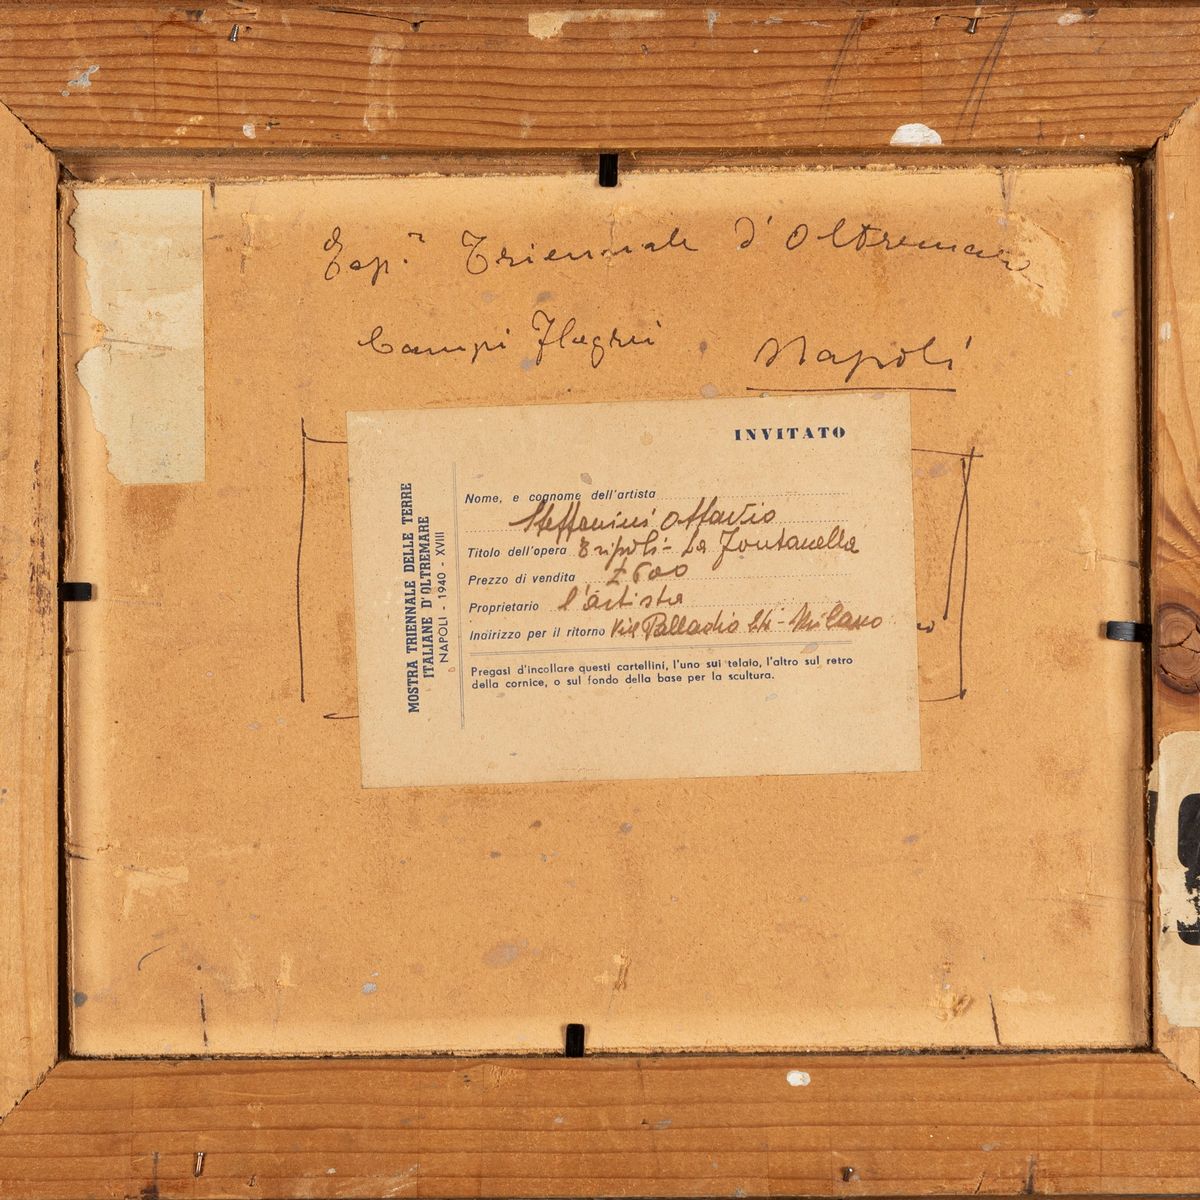 Esp.ne Triennale d'Oltremare
Campi Flegrei Napoli
INVITATO
MOSTRA TRIENNALE DELLE TERRE
ITALIANE D'OLTREMARE
NAPOLI - 1940 - XVIII
Nome, e cognome dell'artista
Steffenini Ottavio
Titolo dell'opera Tripoli - La Fontanella
Prezzo di vendita
Proprietario l'artista
Indirizzo per il ritorno Via Palladio - Milano
Pregasi d'incollare questi cartellini, l'uno sul telaio, l'altro sul retro
della cornice, o sul fondo della base per la scultura.